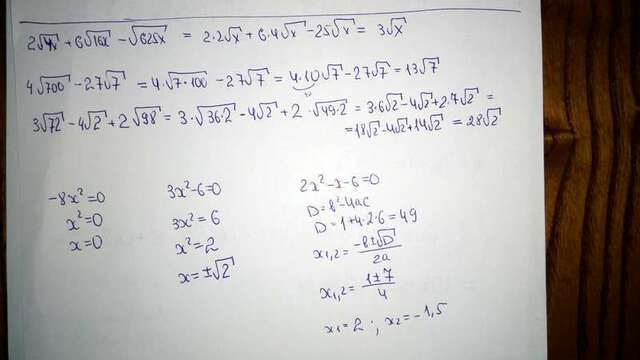 2√4x + 6√16x - √625x = 2·2√x + 6·4√x - 25√x = 3√x
4√700 - 27√7 = 4·√7·100 - 27√7 = 4·10√7 - 27√7 = 13√7
3√72 - 4√2 + 2√98 = 3·√36·2 - 4√2 + 2·√49·2 = 3·6√2 - 4√2 + 2·7√2 =
= 18√2 - 4√2 + 14√2 = 28√2
-8x²=0
x²=0
x=0
3x²-6=0
3x²=6
x²=2
x=±√2
2x²-x-6=0
D=B²-4ac
D=1+4·2·6=49
x₁,₂= -B±√D / 2a
x₁,₂= 1±7 / 4
x₁=2; x₂=-1,5